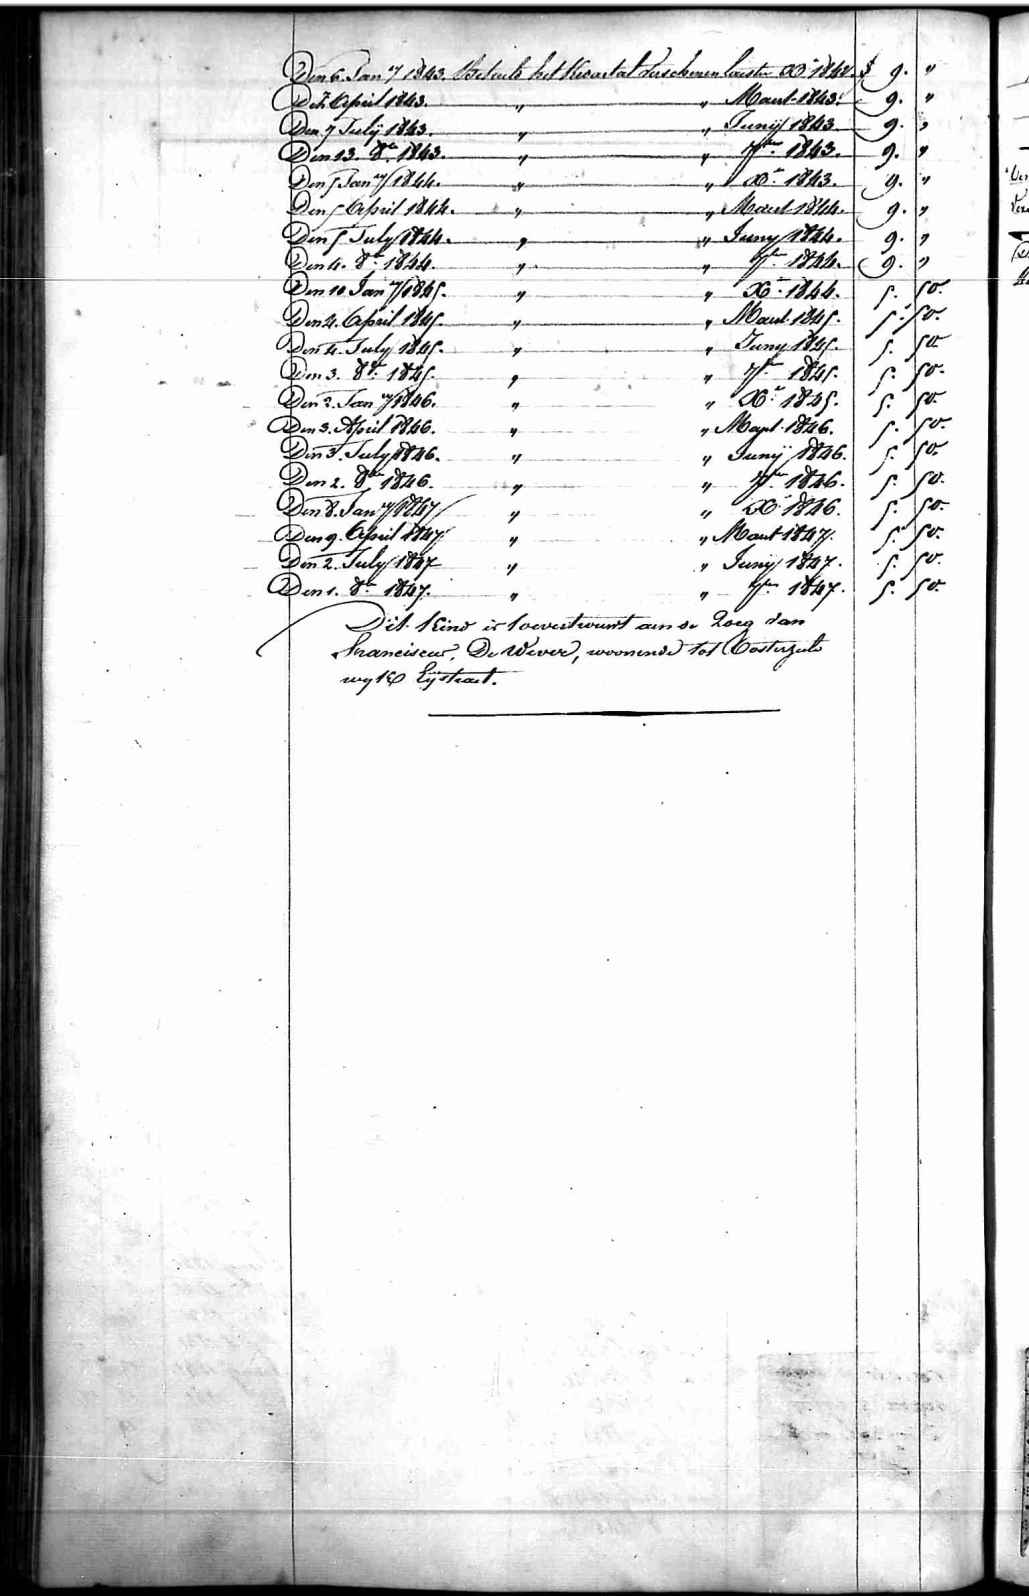 Den 6. Jan.ry 1843. Betaelt het Kwartael verschenen laesten Xr. 1842. $ 9. "
De 7. April 1843. " " Maert 1843. 9. "
Den 7 July 1843. " " Junij 1843 9. "
Den 13. 8br. 1843. " " 7br. 1843. 9. "
Den 5 Jan.ry 1844. " " Xr. 1843. 9. "
Den 5 April 1844. " " Maert 1844. 9. "
Den 5 July 1844. " " Juny 1844. 9. "
Den 4. 8br. 1844. " " 7br. 1844. 9. "
Den 10 Jan.ry 1845. " " Xr. 1844. 5. 50.
Den 4. April 1845. " " Maert 1845. 5. 50.
Den 4. July 1845. " " Juny 1845. 5. 50
Den 3. 8br. 1845. " " 7br. 1845. 5. 50.
Den 2. Jan.ry 1846. " " Xr. 1845. 5. 50.
Den 3. April 1846. " " Maert 1846. 5. 50.
Den 3. July 1846. " " Junij 1846. 5. 50.
Den 2. 8br. 1846. " " 7br. 1846. 5. 50.
Den 8. Jan.ry 1847 " " Xr. 1846. 5. 50.
Den 9. April 1847 " " Maert 1847. 5. 50.
Den 2. July 1847 " " Junij 1847. 5. 50.
Den 1. 8br. 1847. " " 7br. 1847. 5. 50.
Dit Kind is toevertrouwt aen de Zorg van
Franciscus De Wever, woonende tot Oosterzele
wyk Eijstraet.